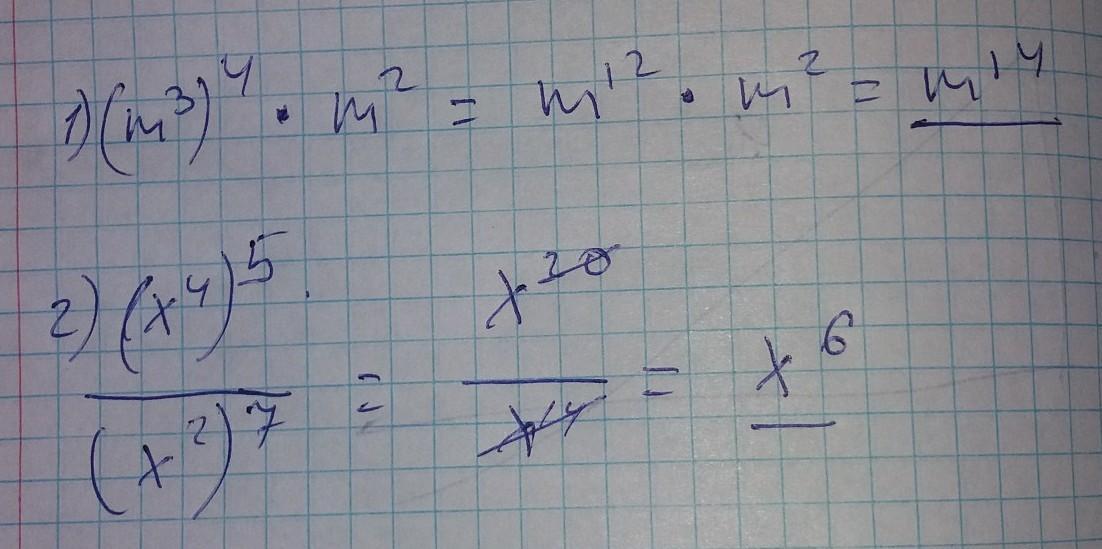 1) (m³)⁴ · m² = m¹² · m² = m¹⁴
2) (x⁴)⁵ / (x²)⁷ = x²⁰ / x¹⁴ = x⁶